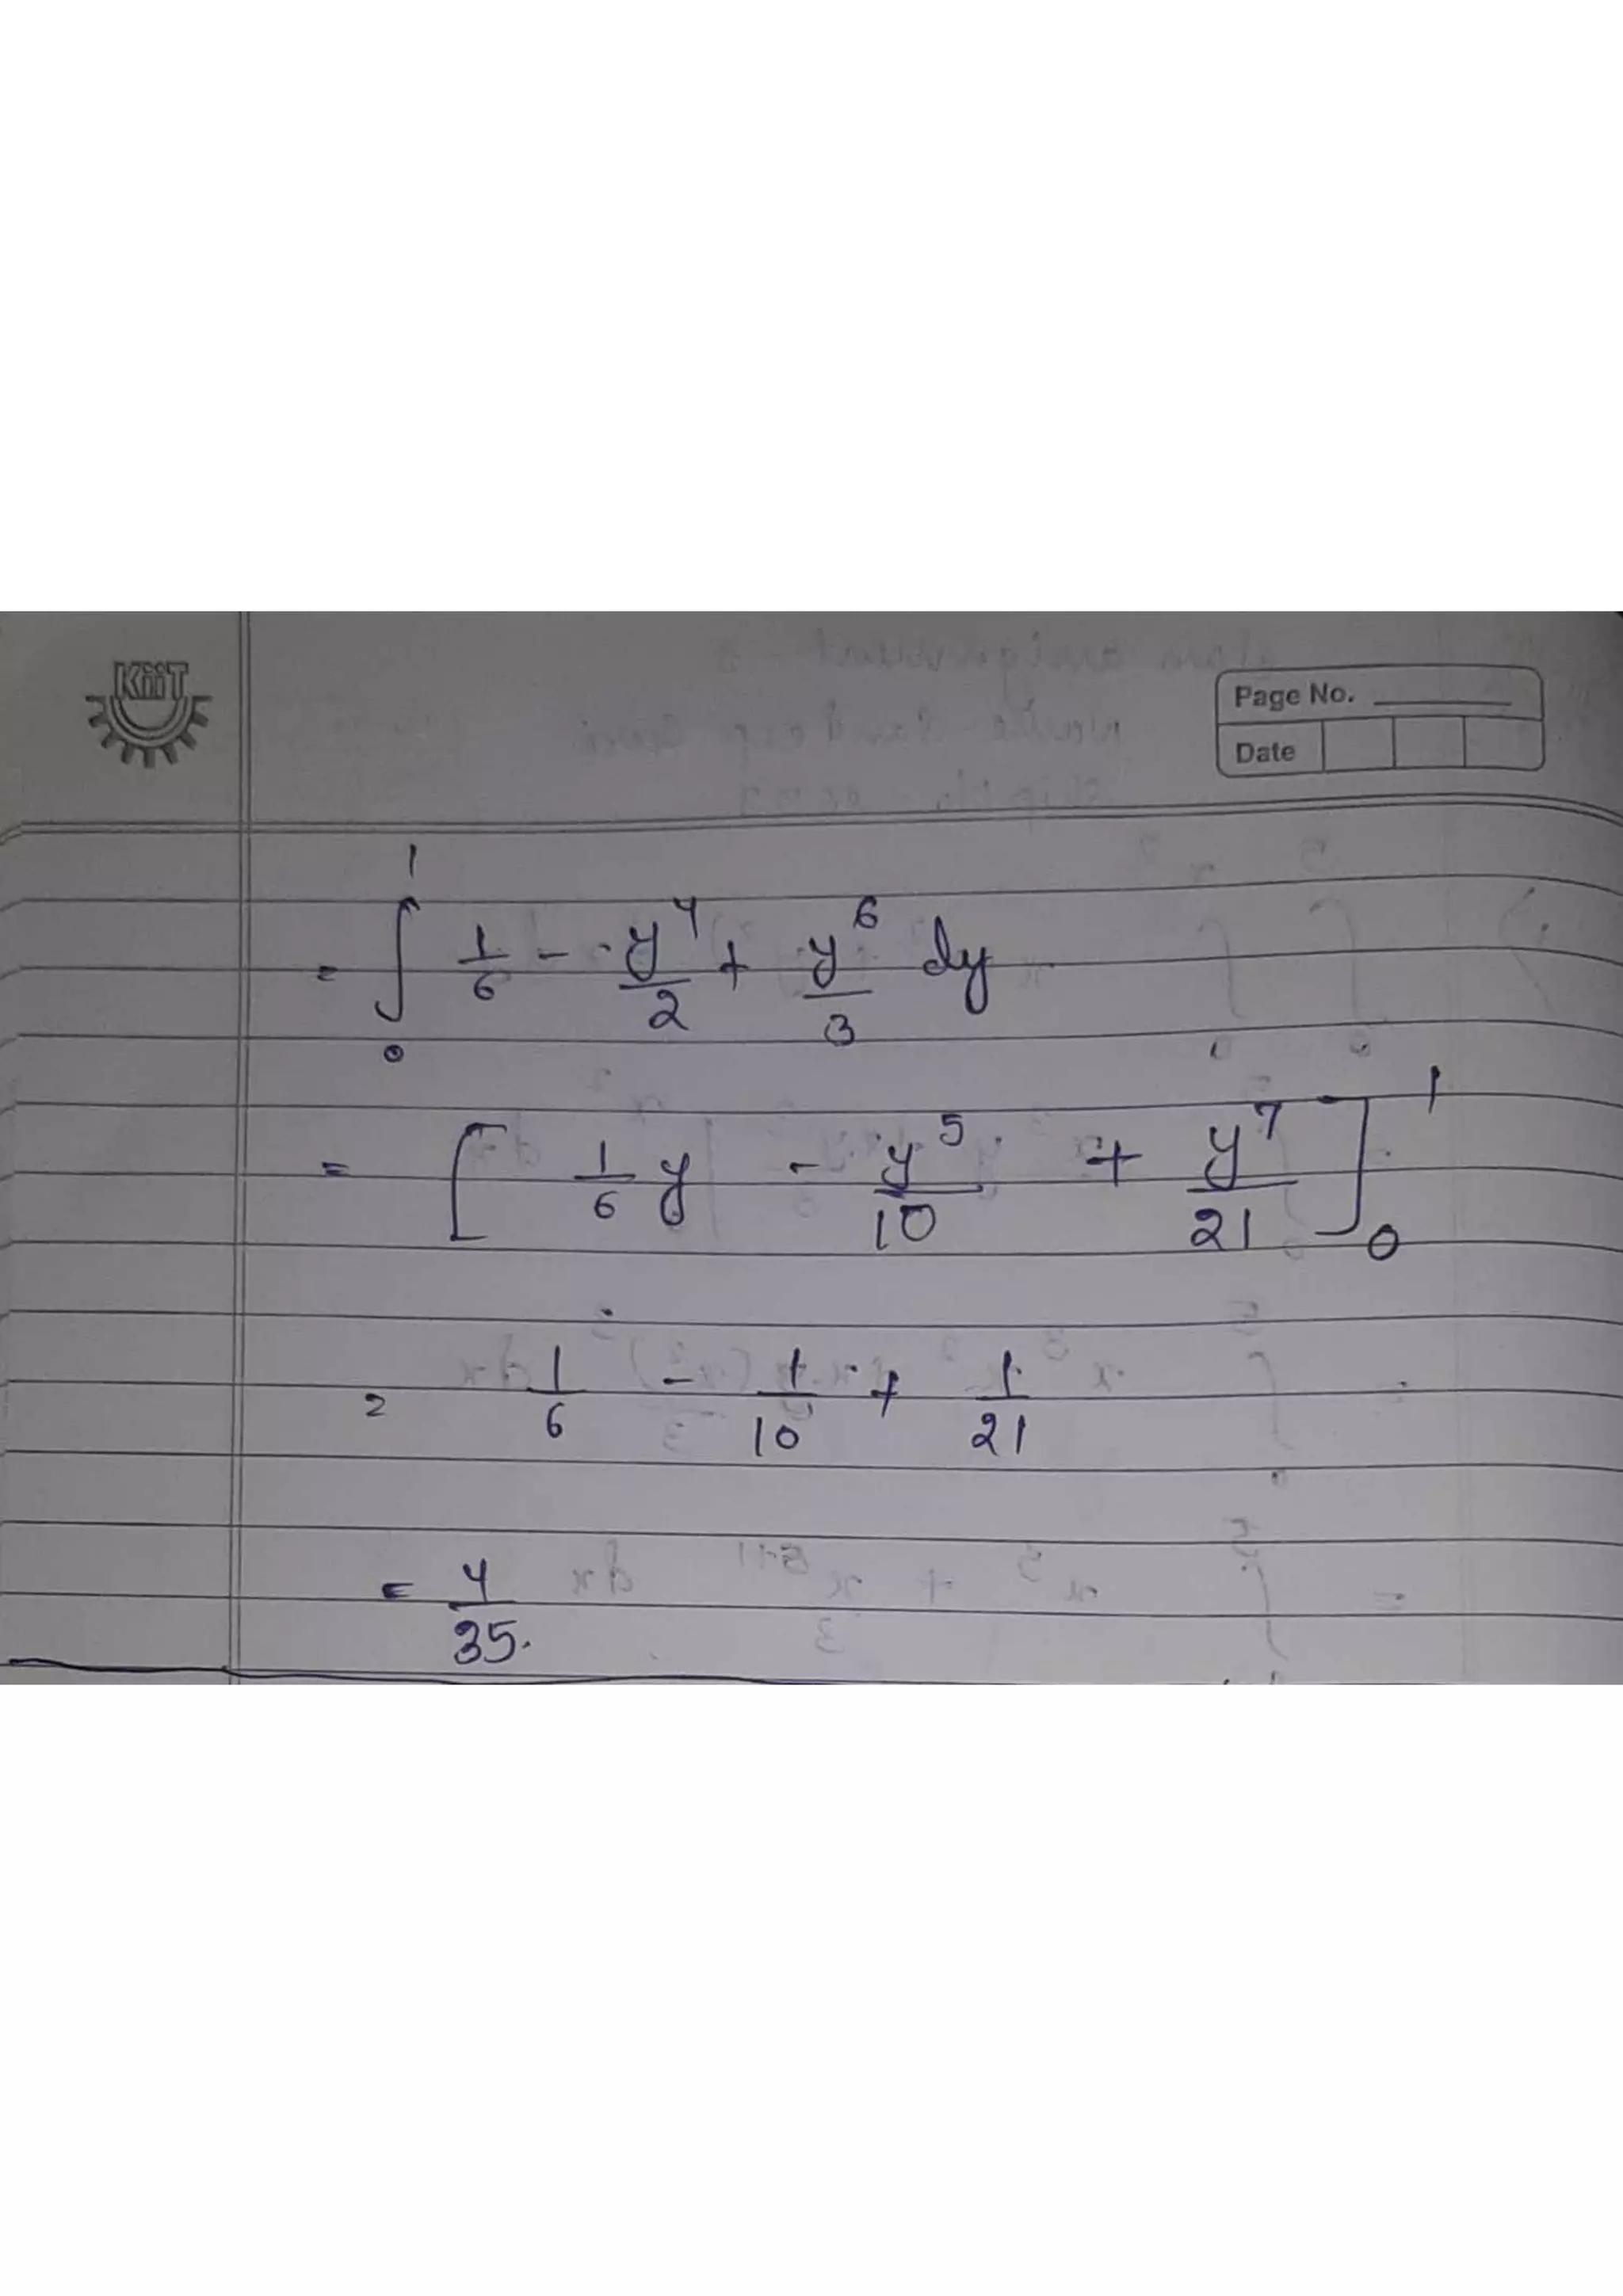 KiiT
Page No.
Date
= ∫₀¹ 1/6 - y⁴/2 + y⁶/3 dy
= [ 1/6 y - y⁵/10 + y⁷/21 ]₀¹
= 1/6 - 1/10 + 1/21
= 4/35.